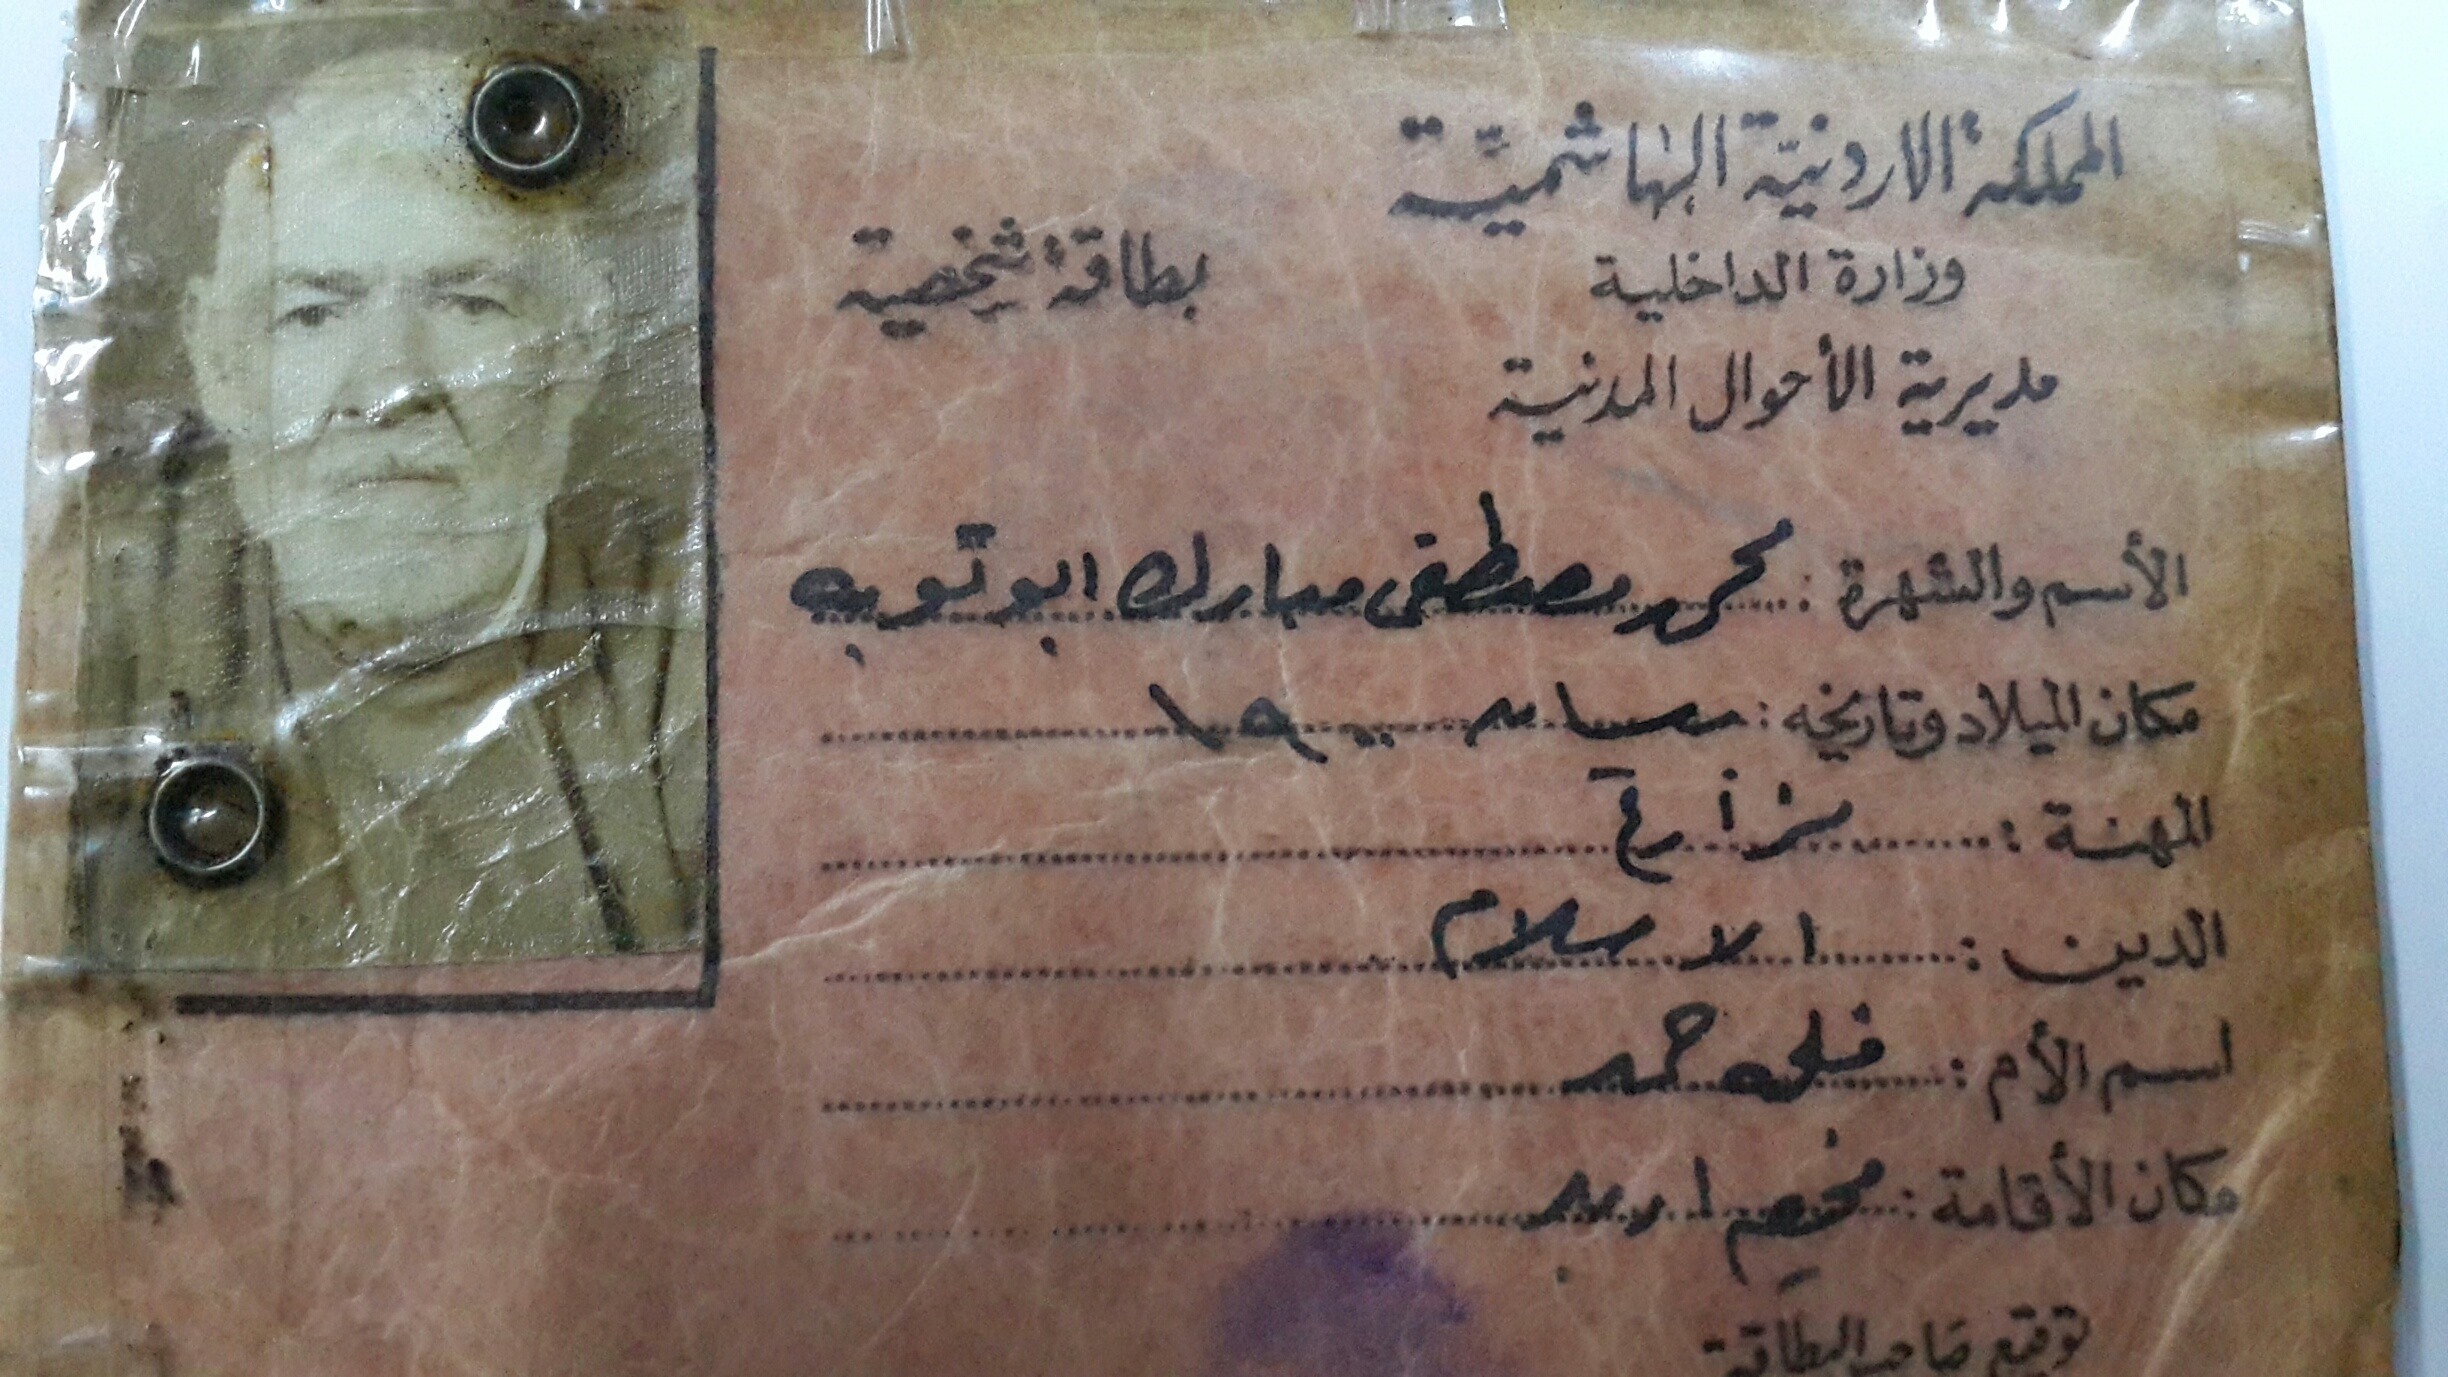 المملكة الاردنية الهاشمية
وزارة الداخلية
بطاقة شخصية
مديرية الأحوال المدنية
الأسم والشهرة : محمد مصطفى مبارك ابو توبه
مكان الميلاد وتاريخه : ١٩٠٠
المهنة : مزارع
الدين : الاسلام
اسم الأم : فلحه حمد
مكان الأقامة : مخيم اربد
توقيع صاحب البطاقة